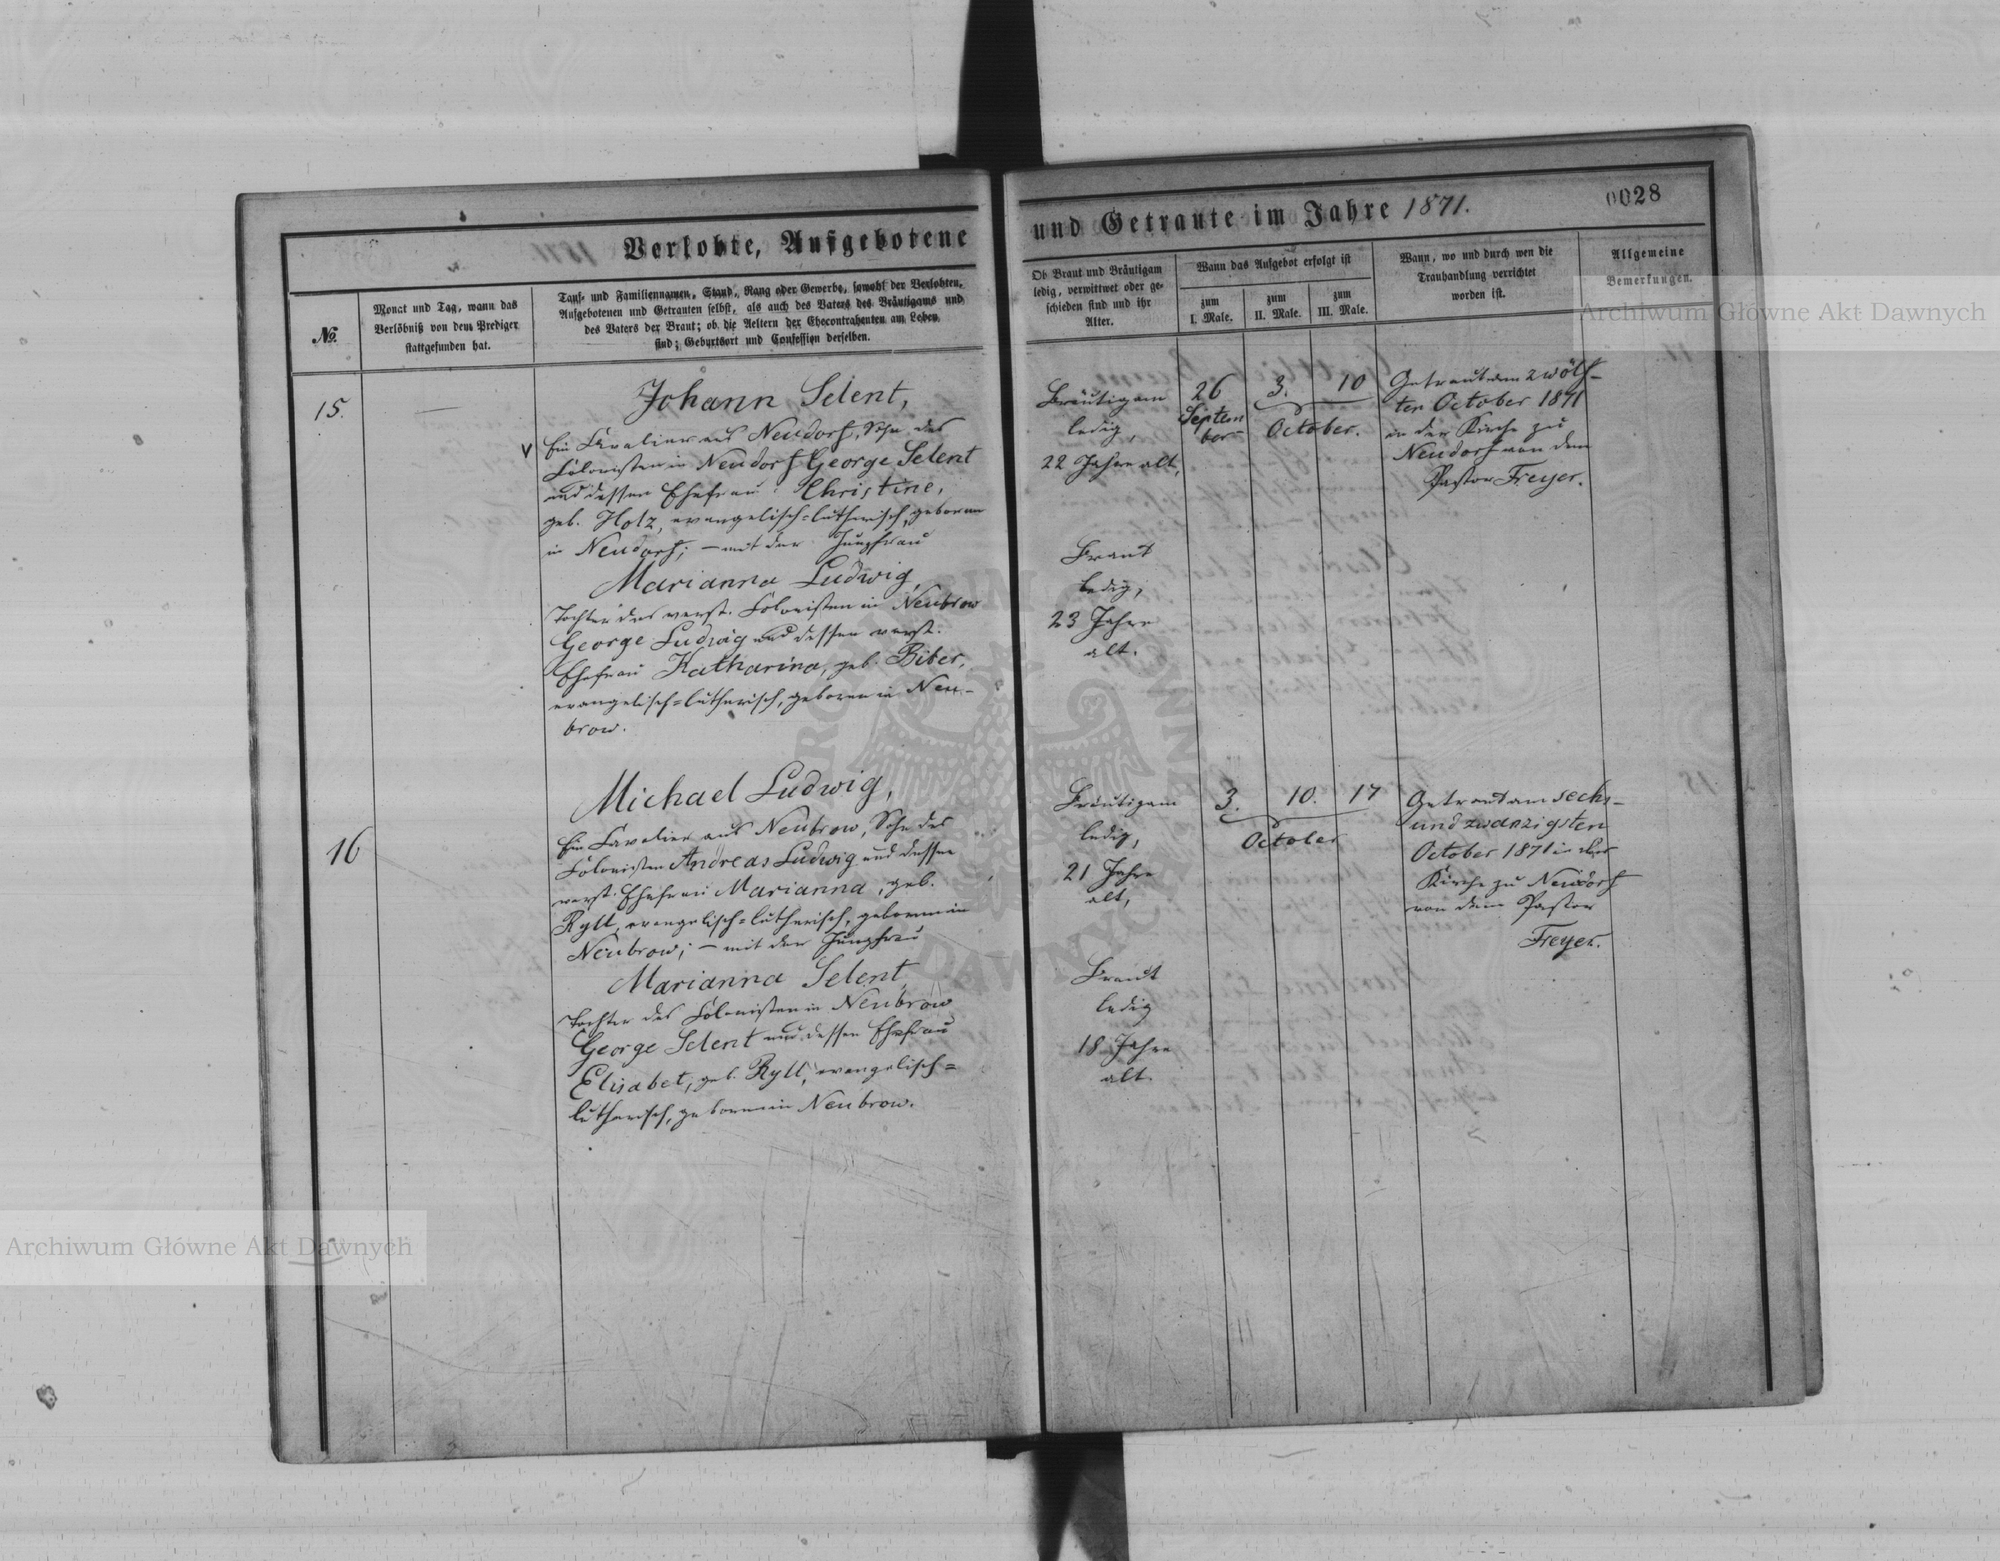 Verlobte, Aufgebotene
No.
Monat und Tag, wann das
Verlöbniß von dem Prediger
stattgefunden hat.
Tauf- und Familiennamen, Stand, Rang oder Gewerbe, sowohl der Verlobten,
Aufgebotenen und Getrauten selbst, als auch des Vaters des Bräutigams und
des Vaters der Braut; ob die Aeltern der Ehecontrahenten am Leben
sind; Geburtsort und Confession derselben.
15.
Johann Selent,
Ein Cavalier aus Neudorf, Sohn des
Colonisten in Neudorf George Selent
und dessen Ehefrau: Christine,
geb. Holz, evangelisch=lutherisch, geboren
in Neudorf; – mit der Jungfrau
Marianna Ludwig,
Tochter des verst. Colonisten in Neubrow
George Ludwig und dessen verst.
Ehefrau Katharina, geb. Biber,
evangelisch=lutherisch, geboren in Neu-
brow.
16
Michael Ludwig,
Ein Cavalier aus Neubrow, Sohn des
Colonisten Andreas Ludwig und dessen
verst. Ehefrau Marianna, geb.
Rytt, evangelisch=lutherisch, geboren in
Neubrow; – mit der Jungfrau
Marianna Selent,
Tochter des Colonisten in Neubrow
George Selent und dessen Ehefrau
Elisabet, geb. Rytt, evangelisch=
lutherisch, geboren in Neubrow.
und Getraute im Jahre 1871.
0028
Ob Braut und Bräutigam
ledig, verwittwet oder ge-
schieden sind und ihr
Alter.
Wann das Aufgebot erfolgt ist
zum
I. Male.
zum
II. Male.
zum
III. Male.
Wann, wo und durch wen die
Trauhandlung verrichtet
worden ist.
Allgemeine
Bemerkungen.
Bräutigam
ledig,
22 Jahre alt,
26
Septem
ber
3. 10
October.
Getraut am zwölf-
ten October 1871
in der Kirche zu
Neudorf von dem
Pastor Freyer.
Braut
ledig,
23 Jahre
alt.
Bräutigam
ledig,
21 Jahre
alt,
3. 10. 17
October
Getraut am sechs-
undzwanzigsten
October 1871 in der
Kirche zu Neudorf
von dem Pastor
Freyer.
Braut
ledig
18 Jahre
alt.
Archiwum Główne Akt Dawnych
Archiwum Główne Akt Dawnych
ARCHIWUM GŁÓWNE
AKT DAWNYCH